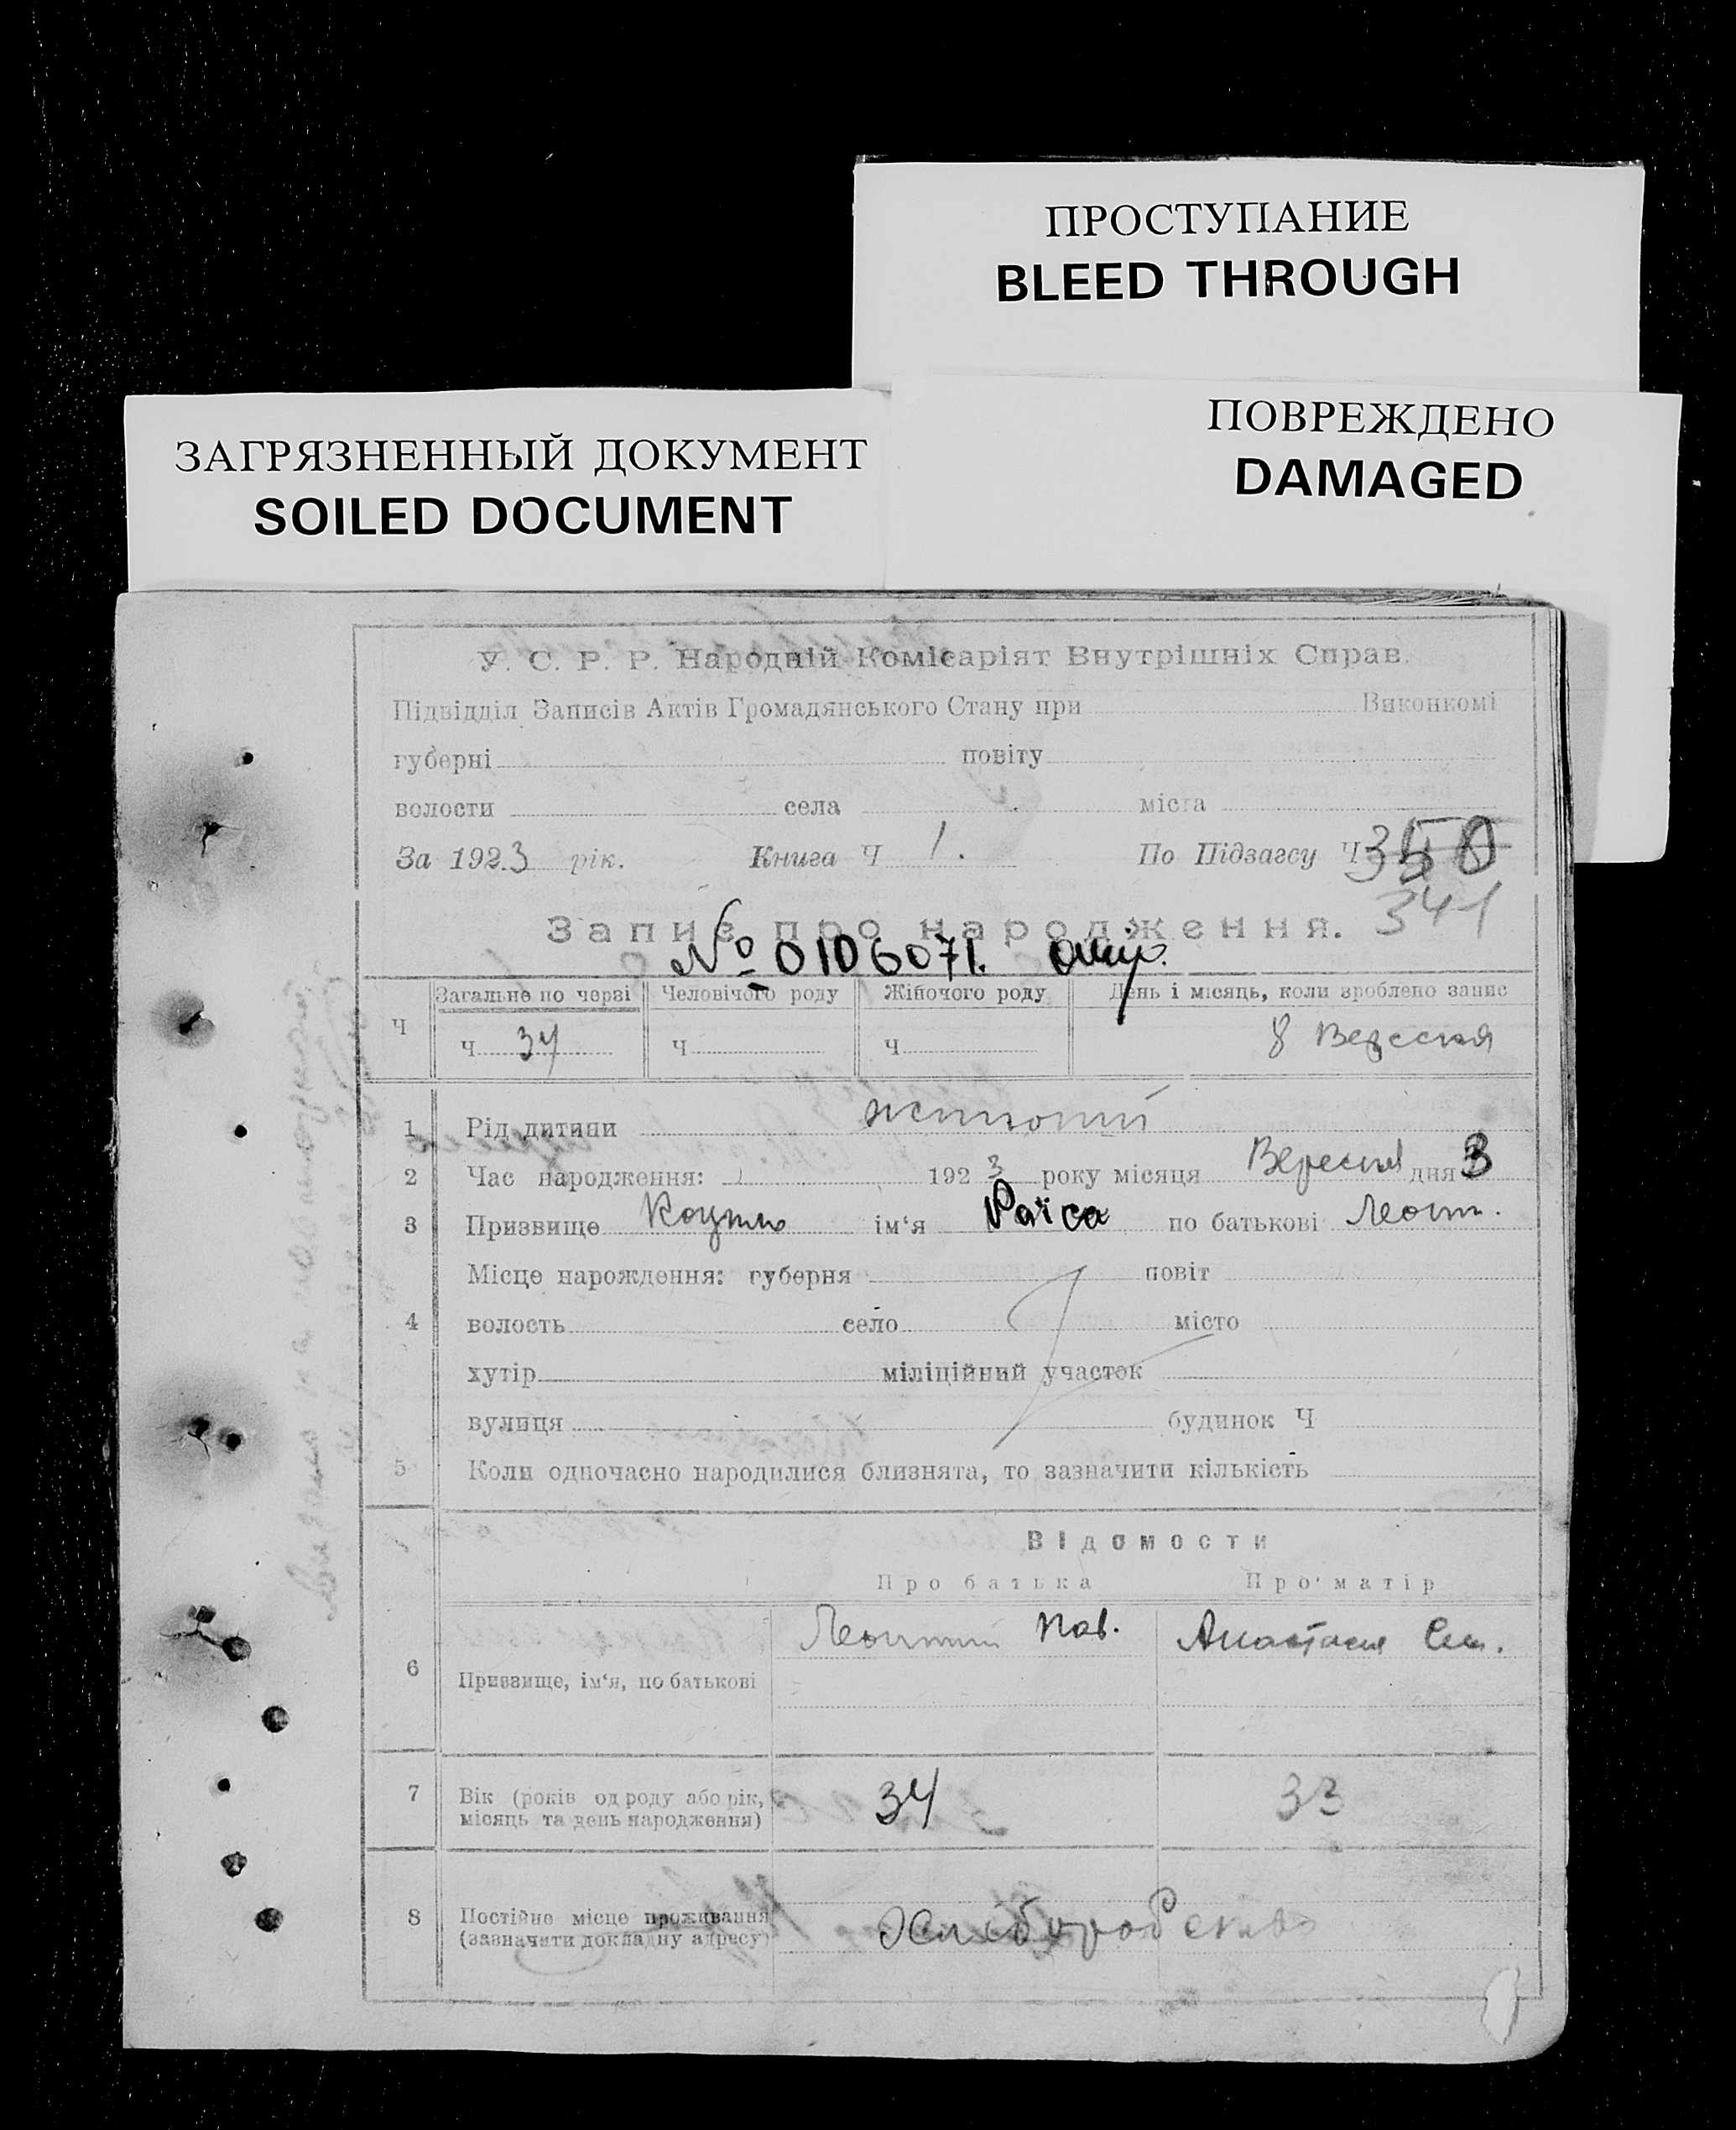 ПРОСТУПАНИЕ
BLEED THROUGH
ПОВРЕЖДЕНО
DAMAGED
ЗАГРЯЗНЕННЫЙ ДОКУМЕНТ
SOILED DOCUMENT
У. С. Р. Р. Народній Комісаріят Внутрішніх Справ.
Підвідділ Записів Актів Громадянського Стану при Виконкомі
губерні повіту
волости села міста
За 1923 рік. Книга Ч 1. По Підзагсу Ч 350
341
Запис про народження.
№ 0106071.
Загальне по черзі Человічого роду Жіночого роду День і місяць, коли зроблено запис
Ч Ч 34 Ч Ч 8 Вересня
1 Рід дитини жіночий
2 Час народження: 1923 року місяця Вересня дня 3
3 Призвище ім‘я Раїса по батькові Леонт.
Місце нарождення: губерня повіт
4 волость село місто
хутір міліційний участок
вулиця будинок Ч
5 Коли одночасно народилися близнята, то зазначити кількість
Відомости
Про батька Про матір
Леонтий Пав. Анастасия Сем.
6 Призвище, ім‘я, по батькові
7 Вік (років од роду або рік, місяць та день народження) 34 33
8 Постійне місце проживання (зазначити докладну адресу)